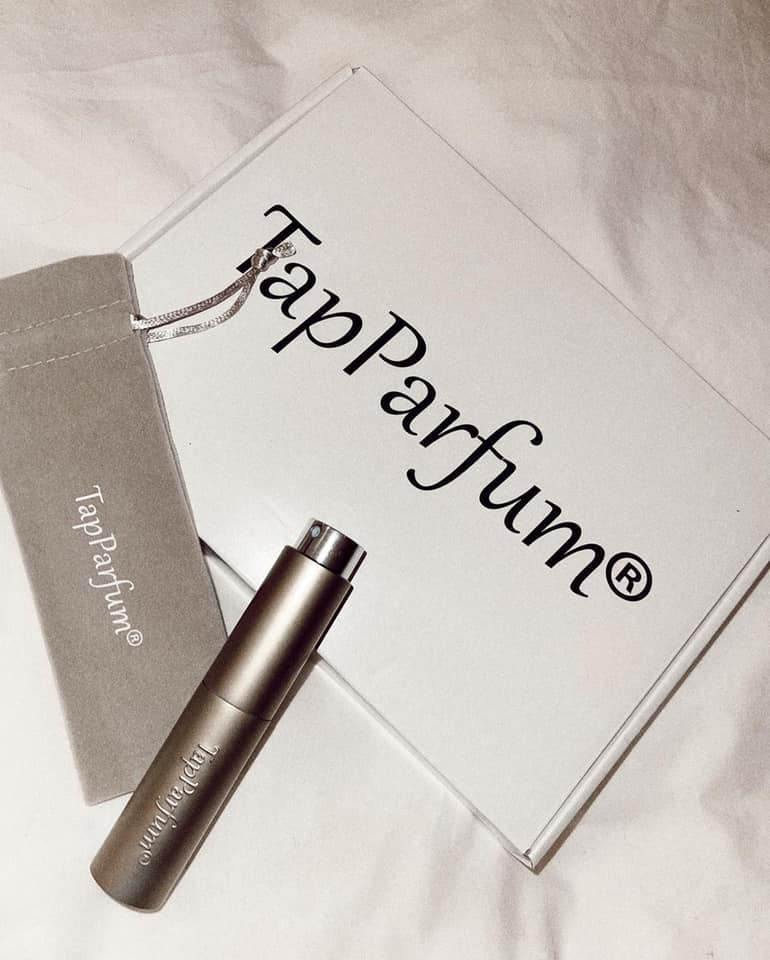 TapParfum®
TapParfum®
TapParfum®